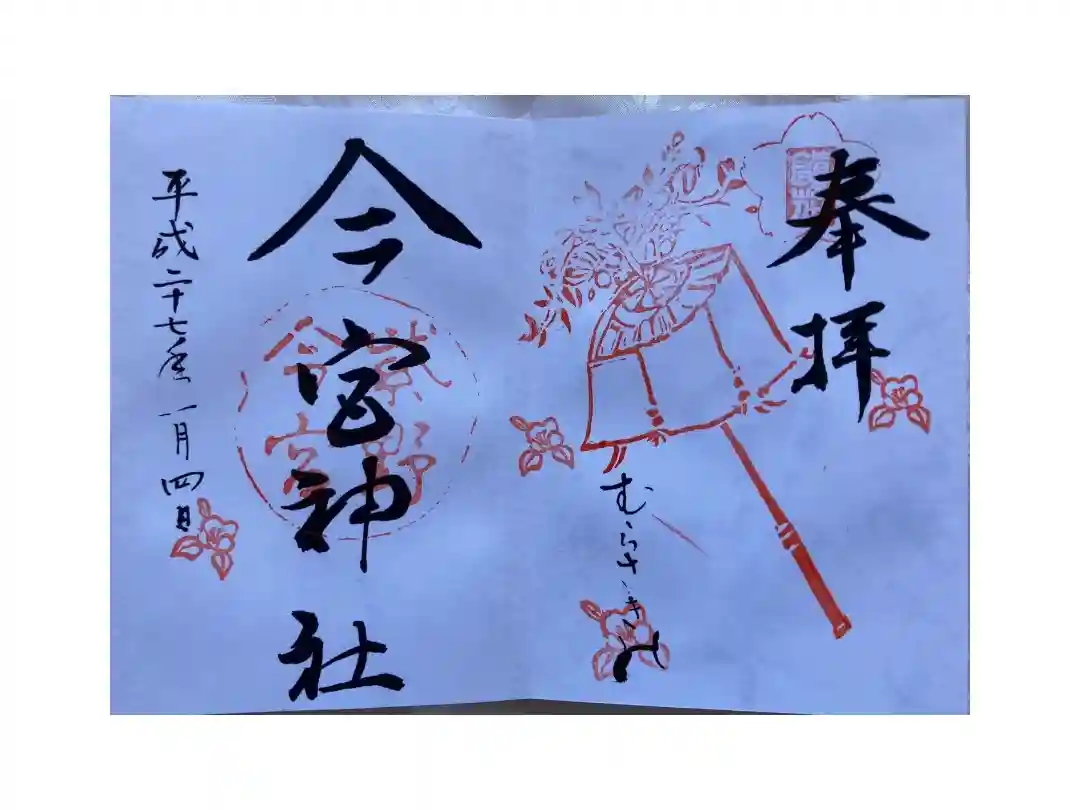 奉拝
むらさきの
今宮神社
紫野
今宮
平成二十七年一月四日